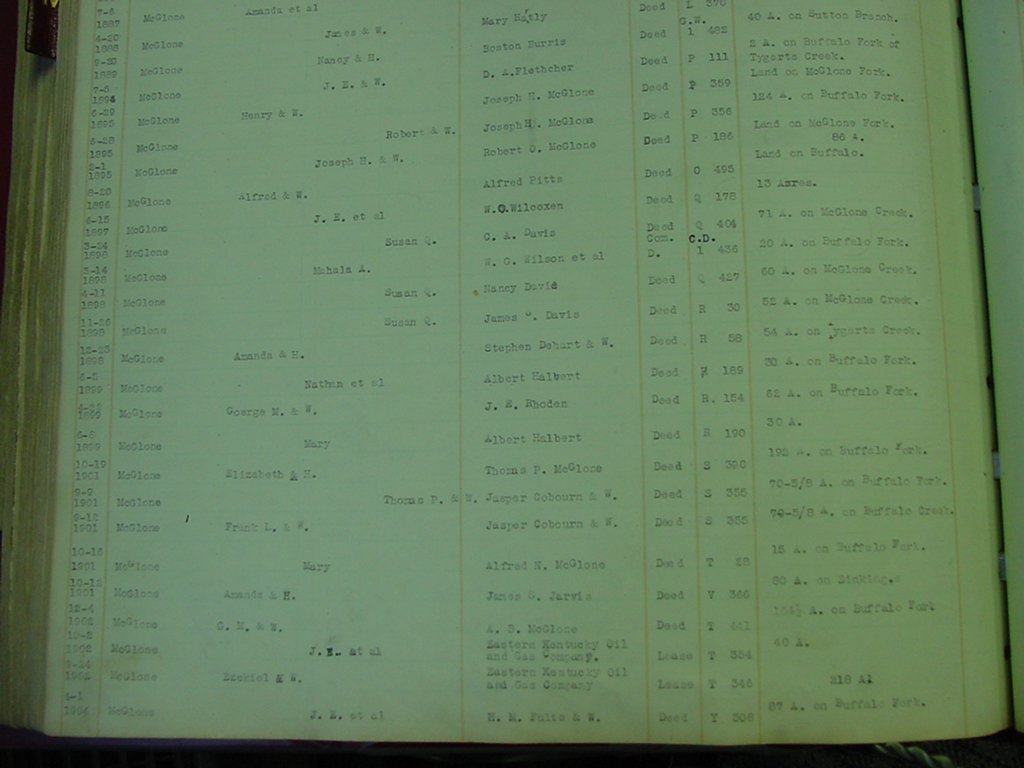 7-6
1887 McGlone Amanda et al Mary Hatly Deed L 370 40 A. on Sutton Branch.
4-20 G.W.
1888 McGlone James & W. Boston Burris Deed 1 482 2 A. on Buffalo Fork of
Tygerts Creek.
9-20
1889 McGlone Nancy & H. D. A.Flethcher Deed P 111 Land on McGlone Fork.
7-5
McGlone J. E. & W. Joseph H. McGlone Deed P 359 124 A. on Buffalo Fork.
6-29
1898 McGlone Henry & W. JosephH. McGlone Deed P 356 Land on McGlone Fork.
6-28 86 A.
1895 McGlone Robert & W. Robert O. McGlone Deed P 186 Land on Buffalo.
1895 McGlone Joseph H. & W. Alfred Pitts Deed O 495 13 Azres.
8-20
1896 McGlone Alfred & W. W.O.Wilcoxen Deed Q 178 71 A. on McGlone Creek.
6-15
1897 McGlone J. E. et al C. A. Davis Deed Q 404
3-24 Com. C.D.
1898 McGlone Susan Q. W. G. Wilson et al D. 1 436 20 A. on Buffalo Fork.
3-14
1898 McGlone Mahala A. Nancy David Deed Q 427 60 A. on McGlone Creek.
4-11
1898 McGlone Susan Q. James W. Davis Deed R 30 52 A. on McGlone Creek.
11-26
1898 McGlone Susan Q. Stephen Dehart & W. Deed R 58 54 A. on Tygerts Creek.
12-23
1898 McGlone Amanda & H. Albert Halbert Deed R 189 30 A. on Buffalo Fork.
6-5
1899 McGlone Nathan et al J. E. Rhoden Deed R. 154 62 A. on Buffalo Fork.
1899 McGlone Goerge M. & W. 30 A.
6-8
1899 McGlone Mary Albert Halbert Deed R 190 192 A. on Buffalo Fork.
10-19
1901 McGlone Elizabeth & H. Thomas P. McGlone Deed S 390 70-5/8 A. on Buffalo Fork.
9-9
1901 McGlone Thomas P. & W. Jasper Cobourn & W. Deed S 355 70-5/8 A. on Buffalo Creek.
9-12
1901 McGlone Frank L. & W. Jasper Cobourn & W. Deed S 355
10-16 15 A. on Buffalo Fork.
1901 McGlone Mary Alfred N. McGlone Deed T 28
10-12 80 A. on Sinking.
1901 McGlone Amanda & H. James S. Jarvis Deed V 366
12-4 A. on Buffalo Fork
1902 McGlone G. M. & W. A. B. McGlone Deed T 441
10-2 Eastern Kentucky Oil 40 A.
1902 McGlone J.E. et al and Gas Company. Lease T 354
9-24 Eastern Kentucky Oil
1902 McGlone Ezekiel & W. and Gas Company Lease T 346 218 Al
6-1 87 A. on Buffalo Fork.
McGlone J. E. et al H. M. Fults & W. Deed Y 308